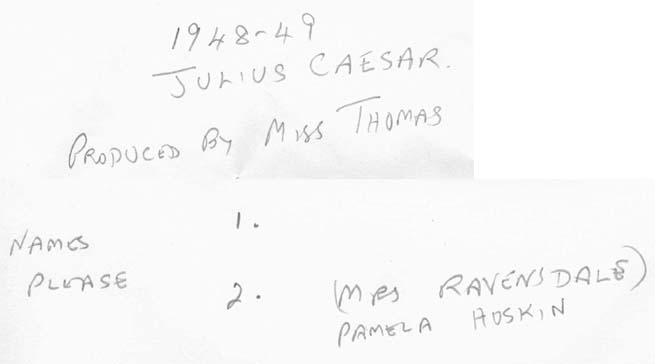 1948-49
JULIUS CAESAR.
PRODUCED BY MISS THOMAS
NAMES PLEASE
1.
2. (MRS RAVENSDALE)
PAMELA HOSKIN